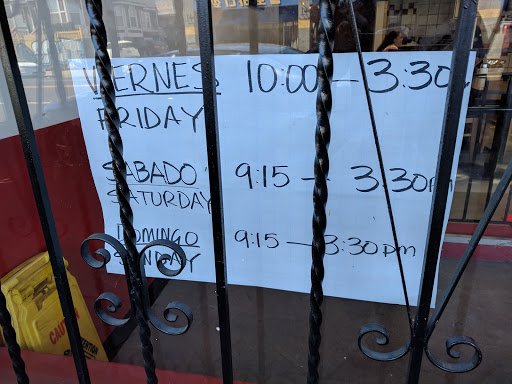 VIERNES 10:00 - 3:30
FRIDAY
SABADO 9:15 - 3:30pm
SATURDAY
DOMINGO 9:15 - 3:30pm
SUNDAY
CAUTION